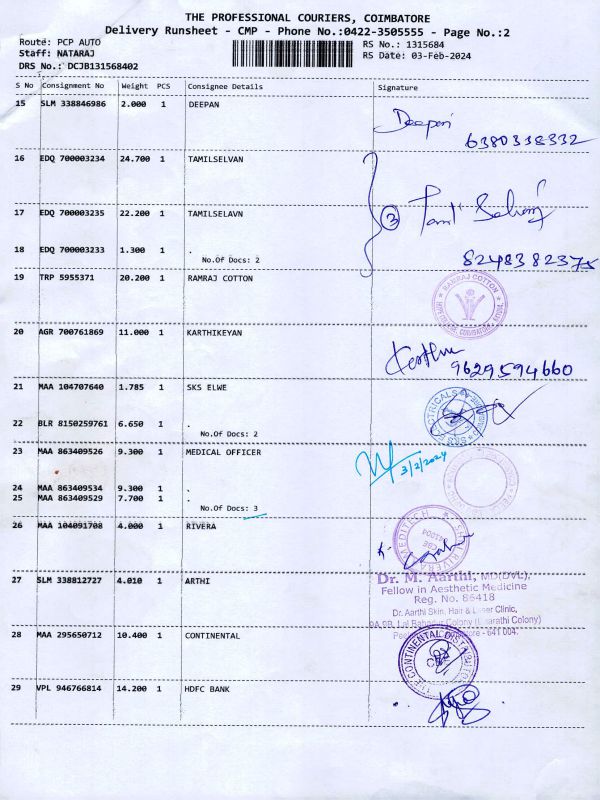 THE PROFESSIONAL COURIERS, COIMBATORE
Delivery Runsheet - CMP - Phone No.:0422-3505555 - Page No.:2
Route: PCP AUTO
RS No.: 1315684
Staff: NATARAJ
RS Date: 03-Feb-2024
DRS No.: DCJB131568402
S No Consignment No Weight PCS Consignee Details Signature
15 SLM 338846986 2.000 1 DEEPAN
Deepan
6380318332
16 EDQ 700003234 24.700 1 TAMILSELVAN
17 EDQ 700003235 22.200 1 TAMILSELAVN
3 Tamil Selvan
18 EDQ 700003233 1.300 1 .
No.Of Docs: 2
8248382375
19 TRP 5955371 20.200 1 RAMRAJ COTTON
RAMRAJ COTTON
20 AGR 700761869 11.000 1 KARTHIKEYAN
9629594660
21 MAA 104707640 1.785 1 SKS ELWE
SKS ELECTRICALS
22 BLR 8150259761 6.650 1 .
No.Of Docs: 2
23 MAA 863409526 9.300 1 MEDICAL OFFICER
3/2/2024
24 MAA 863409534 9.300 1 .
25 MAA 863409529 7.700 1 .
No.Of Docs: 3
26 MAA 104091708 4.000 1 RIVERA
SHRI RIVERA MEDITECH
27 SLM 338812727 4.010 1 ARTHI
Dr. M. Aarthi, MD(DVL),
Fellow in Aesthetic Medicine
Reg. No. 86418
Dr. Aarthi Skin, Hair & Laser Clinic,
Lal Bahadur Colony (Bharathi Colony)
641 004.
28 MAA 295650712 10.400 1 CONTINENTAL
THE CONTINENTAL
29 VPL 946766814 14.200 1 HDFC BANK